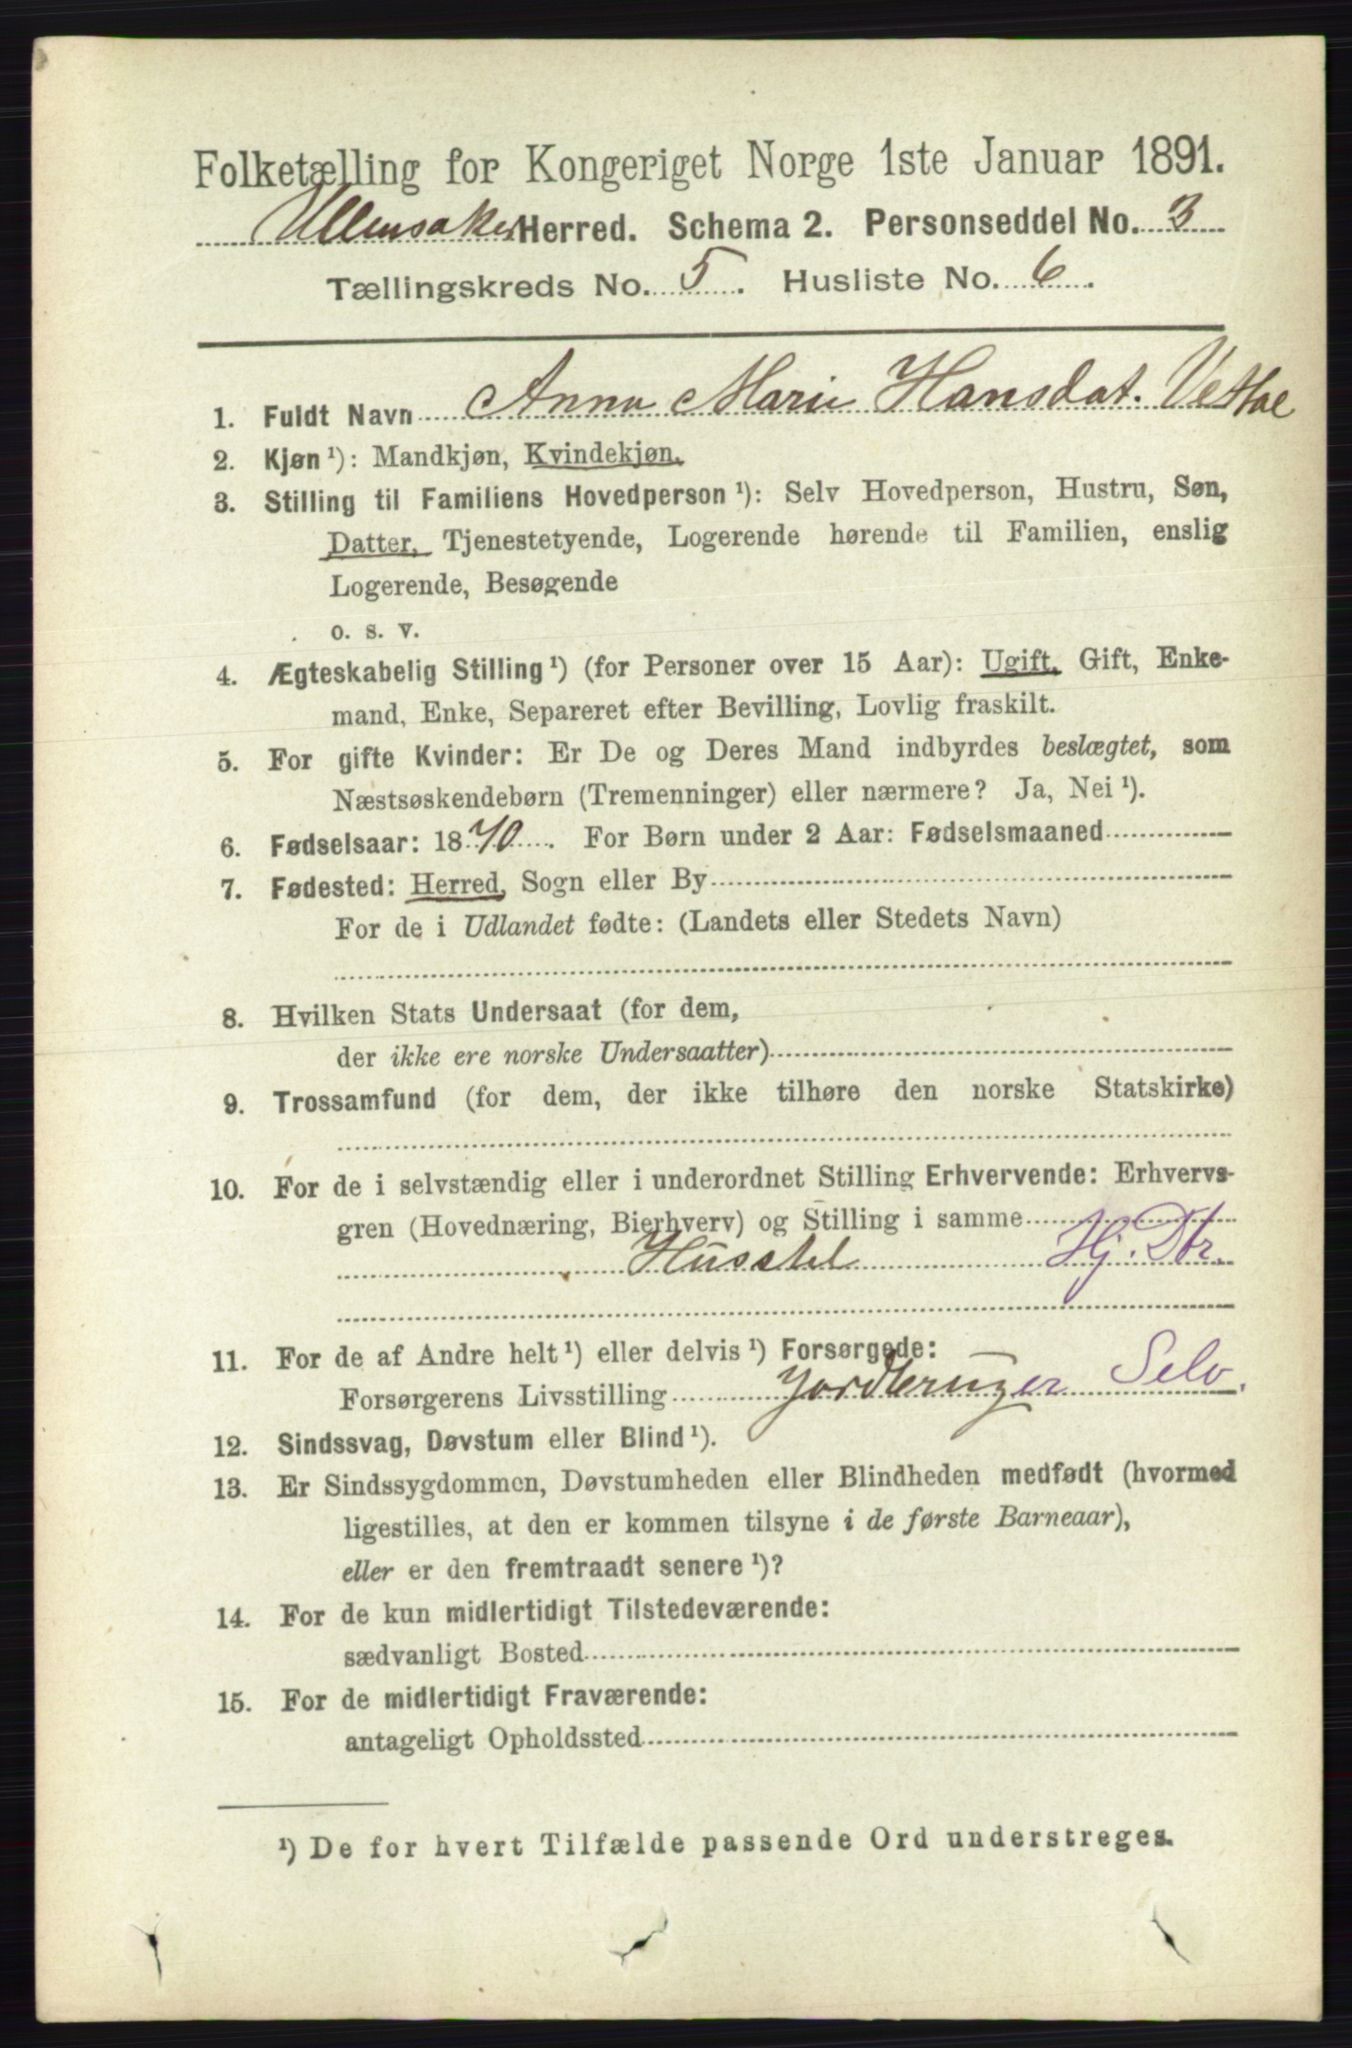 Folketælling for Kongeriget Norge 1ste Januar 1891.
Ullensaker Herred. Schema 2. Personseddel No. 3
Tællingskreds No. 5. Husliste No. 6.
1. Fuldt Navn Anna Marie Hansdat.
2. Kjøn ¹): Mandkjøn, Kvindekjøn.
3. Stilling til Familiens Hovedperson ¹): Selv Hovedperson, Hustru, Søn,
Datter, Tjenestetyende, Logerende hørende til Familien, enslig
Logerende, Besøgende
o. s. v.
4. Ægteskabelig Stilling ¹) (for Personer over 15 Aar): Ugift, Gift, Enke-
mand, Enke, Separeret efter Bevilling, Lovlig fraskilt.
5. For gifte Kvinder: Er De og Deres Mand indbyrdes beslægtet, som
Næstsøskendebørn (Tremenninger) eller nærmere? Ja, Nei ¹).
6. Fødselsaar: 1870. For Børn under 2 Aar: Fødselsmaaned
7. Fødested: Herred, Sogn eller By
For de i Udlandet fødte: (Landets eller Stedets Navn)
8. Hvilken Stats Undersaat (for dem,
der ikke ere norske Undersaatter)
9. Trossamfund (for dem, der ikke tilhøre den norske Statskirke)
10. For de i selvstændig eller i underordnet Stilling Erhvervende: Erhvervs-
gren (Hovednæring, Bierhverv) og Stilling i samme
Husstel Hj. Dtr.
11. For de af Andre helt ¹) eller delvis ¹) Forsørgede:
Forsørgerens Livsstilling Jordbruger Selv.
12. Sindssvag, Døvstum eller Blind ¹).
13. Er Sindssygdommen, Døvstumheden eller Blindheden medfødt (hvormed
ligestilles, at den er kommen tilsyne i de første Barneaar),
eller er den fremtraadt senere ¹)?
14. For de kun midlertidigt Tilstedeværende:
sædvanligt Bosted
15. For de midlertidigt Fraværende:
antageligt Opholdssted
¹) De for hvert Tilfælde passende Ord understreges.